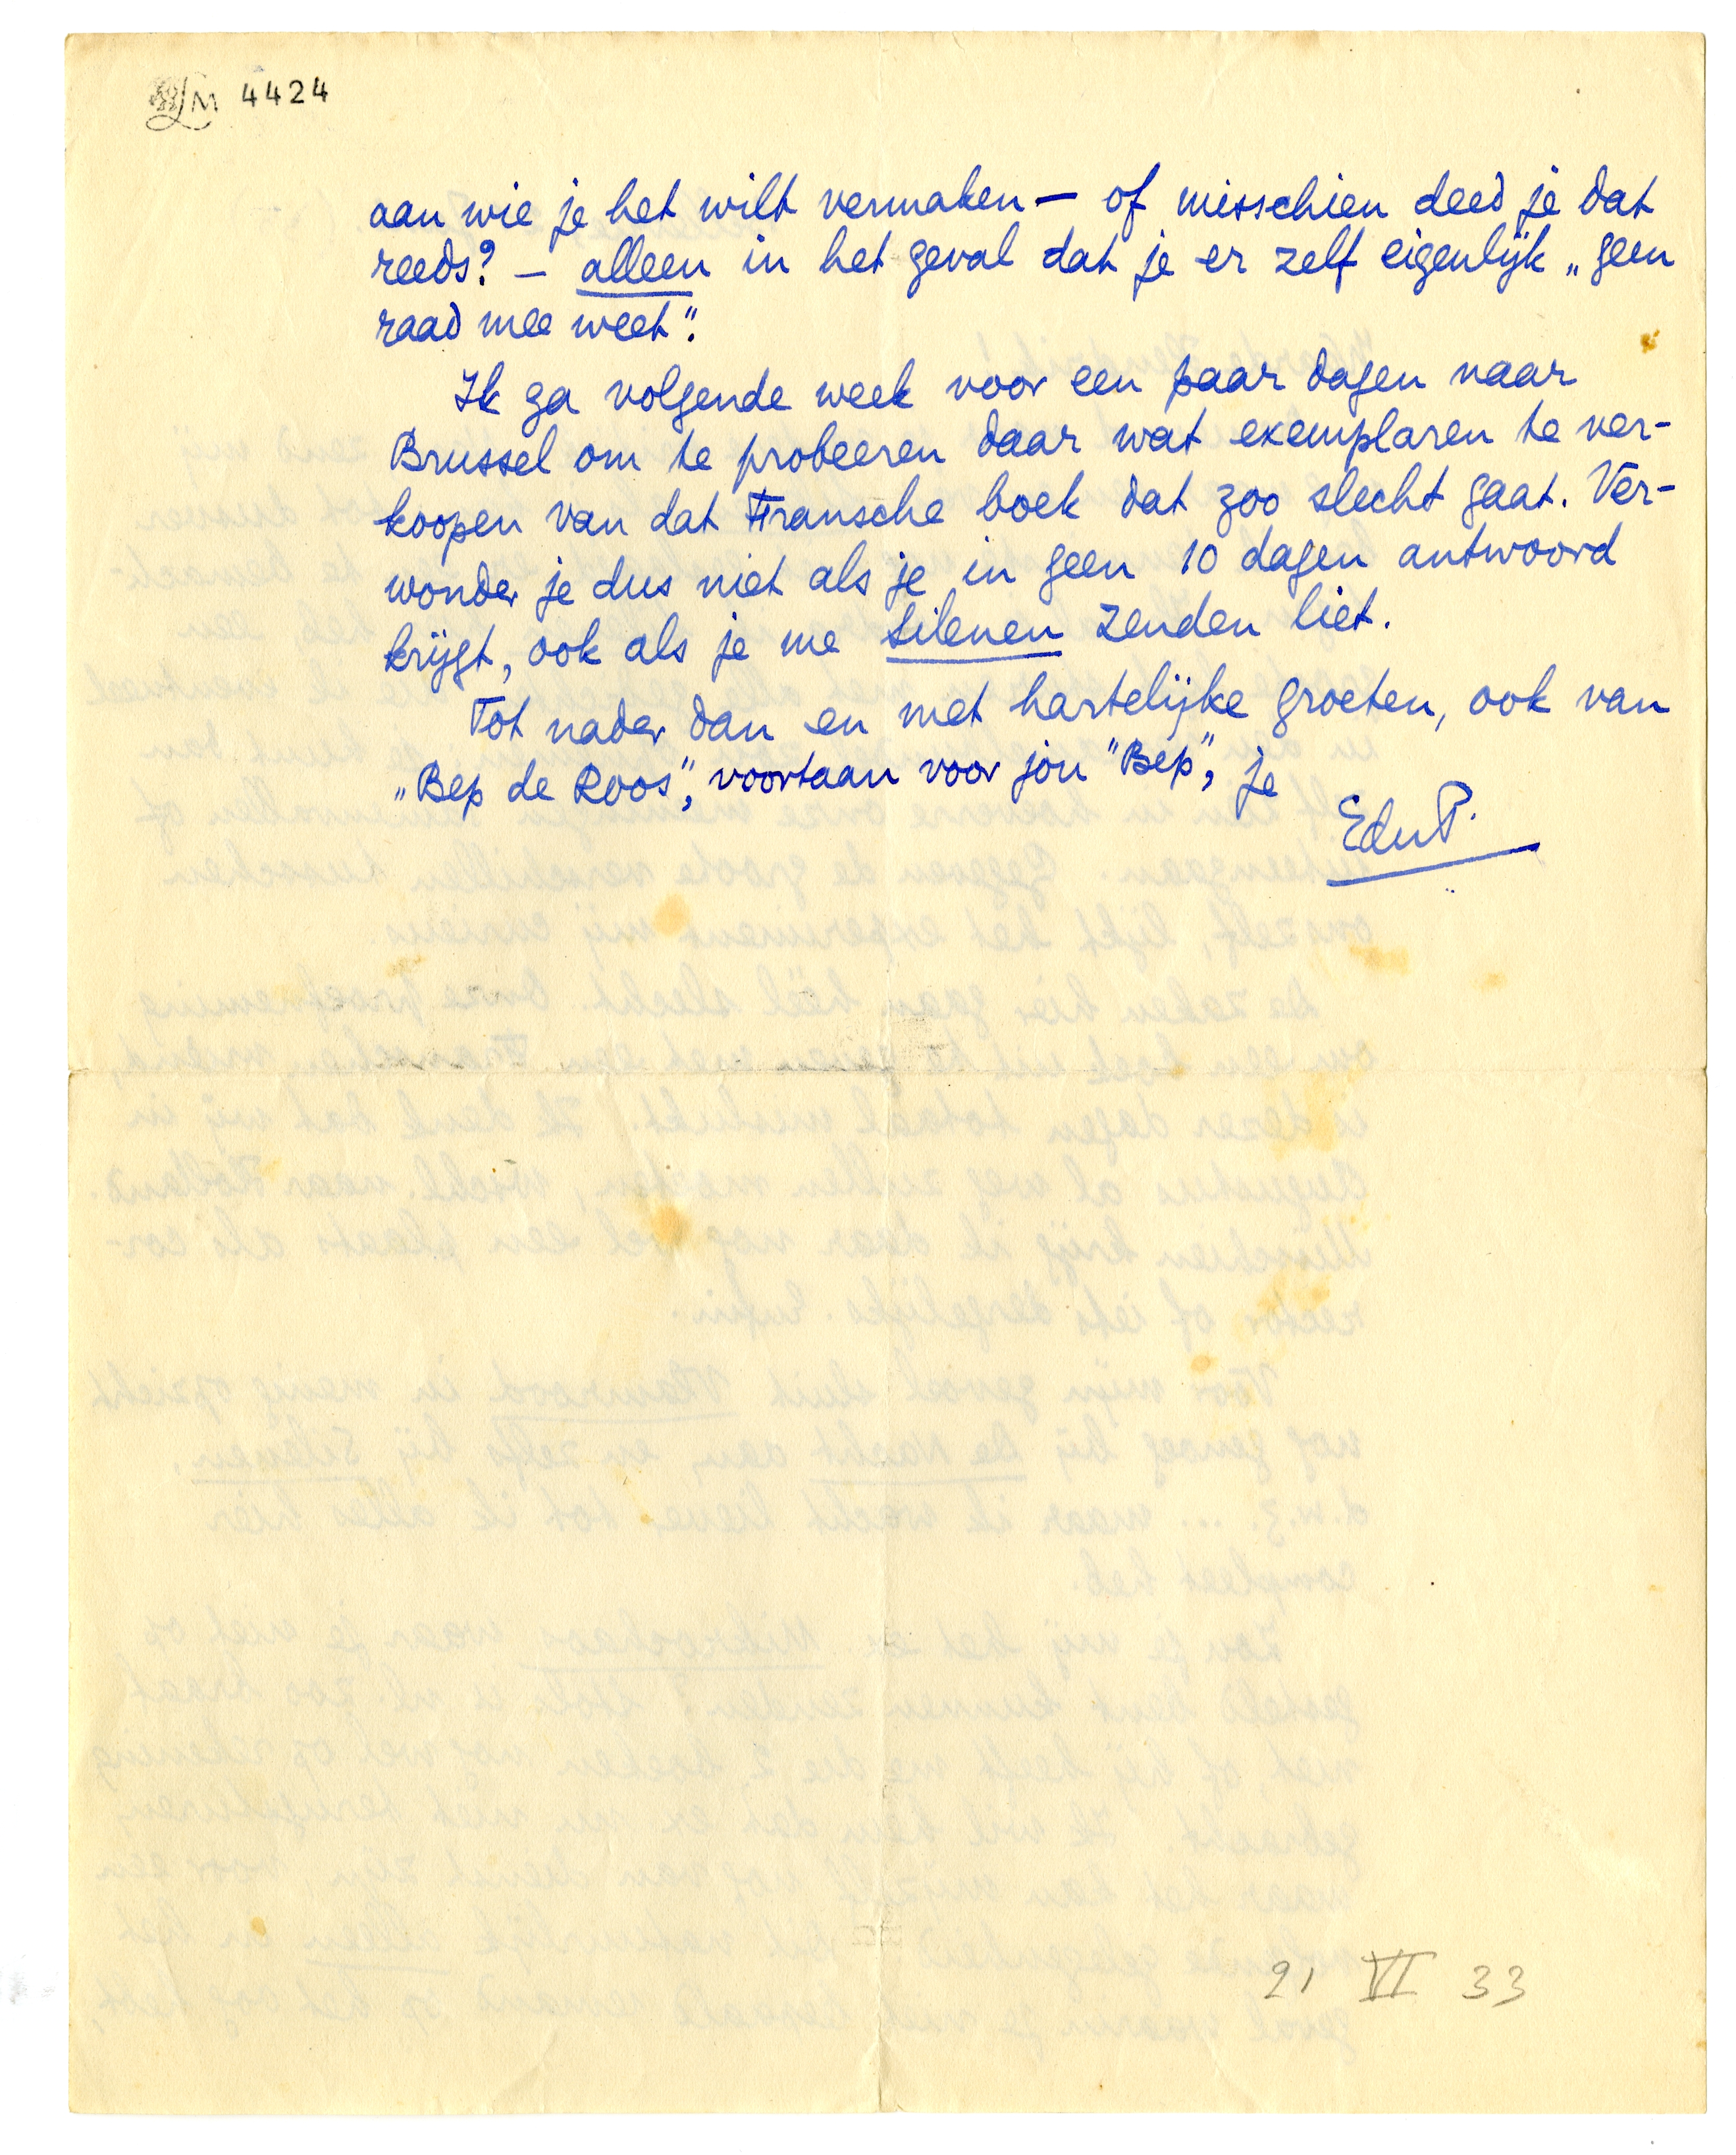 LM 4424
aan wie je het wilt vermaken — of misschien deed je dat
reeds? — alleen in het geval dat je er zelf eigenlijk „geen
raad mee weet".
Ik ga volgende week voor een paar dagen naar
Brussel om te probeeren daar wat exemplaren te ver-
koopen van dat Fransche boek dat zoo slecht gaat. Ver-
wonder je dus niet als je in geen 10 dagen antwoord
krijgt, ook als je me Silenen zenden liet.
Tot nader dan en met hartelijke groeten, ook van
„Bep de Roos", voortaan voor jou "Bep", je
EduP.
21 VI 33